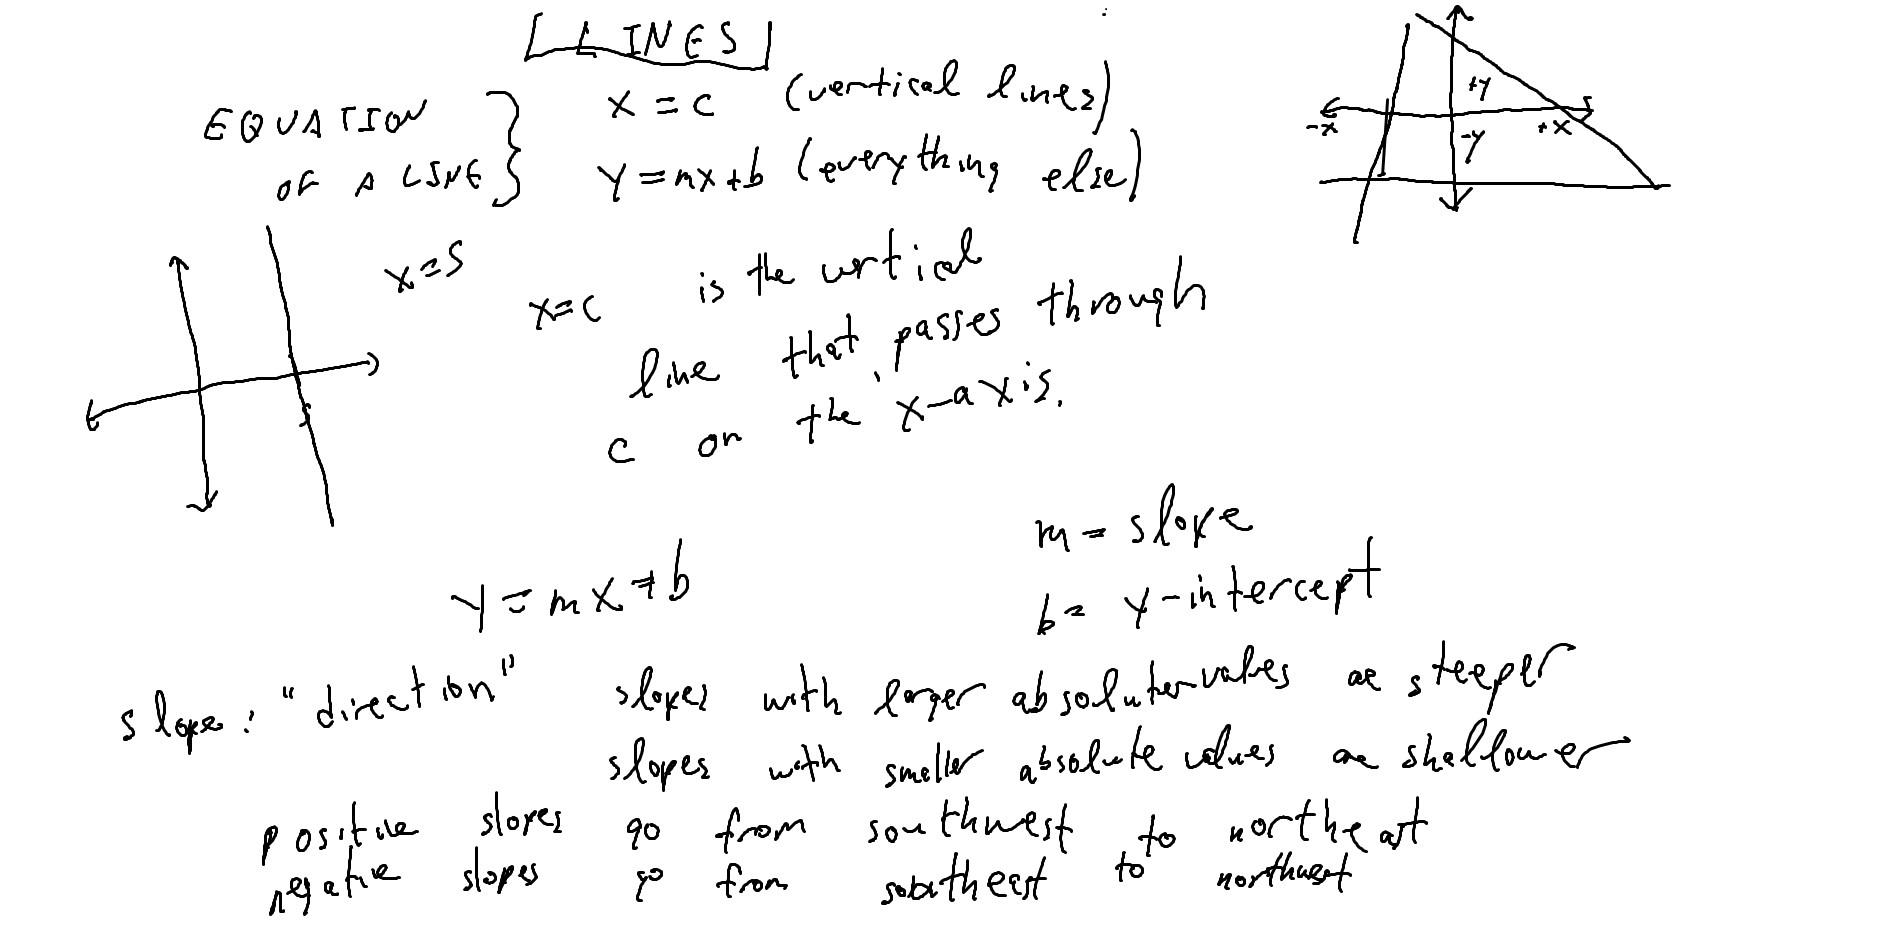 LINES
EQUATION
OF A LINE
x = c (vertical lines)
y = mx + b (everything else)
+y
-x
+x
-y
x = 5
5
x = c is the vertical
line that passes through
c on the x-axis.
y = mx + b
m = slope
b = y-intercept
slope: "direction"
slopes with larger absolute values are steeper
slopes with smaller absolute values are shallower
positive slopes go from southwest to northeast
negative slopes go from southeast to northwest